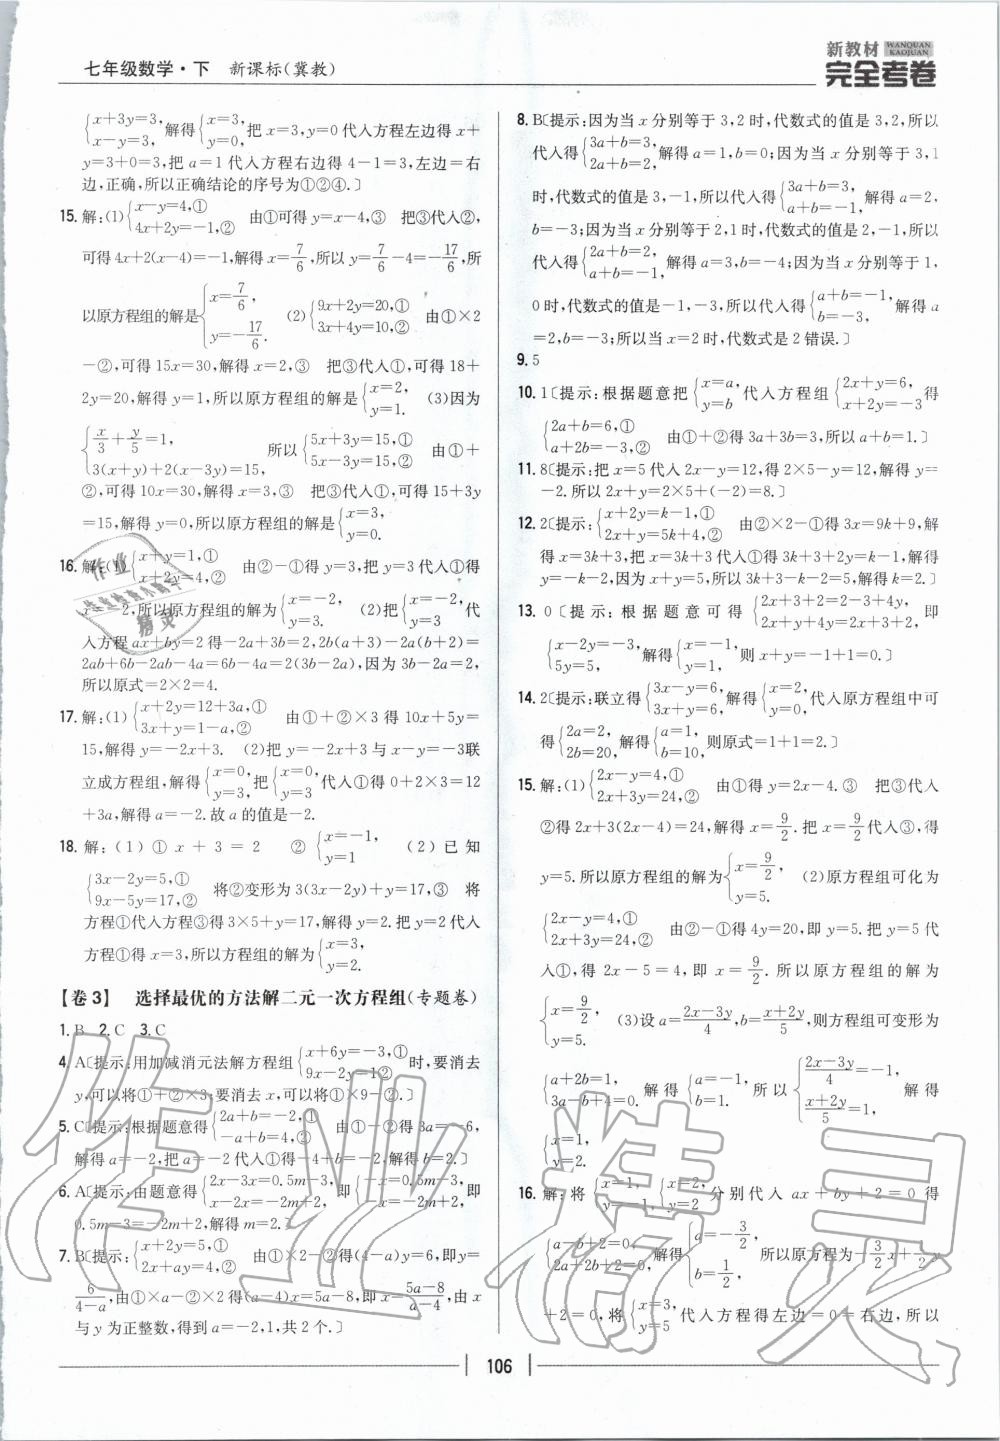 七年级数学·下 新课标(冀教)
新教材 WANQUAN KAOJUAN
完全考卷
{x+3y=3, x-y=3, 解得{x=3, y=0, 把 x=3,y=0 代入方程左边得 x+
y=3+0=3,把 a=1 代入方程右边得 4-1=3,左边=右
边,正确,所以正确结论的序号为①②④.〕
15. 解:(1){x-y=4,① 4x+2y=-1,② 由①可得 y=x-4,③ 把③代入②,
可得 4x+2(x-4)=-1,解得 x=7/6,所以 y=7/6-4=-17/6,所
以原方程组的解是{x=7/6, y=-17/6. (2){9x+2y=20,① 3x+4y=10,② 由①×2
-②,可得 15x=30,解得 x=2,③ 把③代入①,可得 18+
2y=20,解得 y=1,所以原方程组的解是{x=2, y=1. (3)因为
{x/3+y/5=1, 3(x+y)+2(x-3y)=15, 所以{5x+3y=15,① 5x-3y=15,② 由①+
②,可得 10x=30,解得 x=3,③ 把③代入①,可得 15+3y
=15,解得 y=0,所以原方程组的解是{x=3, y=0.
16. 解:(1){x+y=1,① x+2y=4,② 由②-①得 y=3,把 y=3 代入①得
x=-2,所以原方程组的解为{x=-2, y=3. (2)把{x=-2, y=3 代
入方程 ax+by=2 得-2a+3b=2,2b(a+3)-2a(b+2)=
2ab+6b-2ab-4a=6b-4a=2(3b-2a),因为 3b-2a=2,
所以原式=2×2=4.
17. 解:(1){x+2y=12+3a,① 3x+y=1-a,② 由①+②×3 得 10x+5y=
15,解得 y=-2x+3. (2)把 y=-2x+3 与 x-y=-3 联
立成方程组,解得{x=0, y=3, 把{x=0, y=3 代入①得 0+2×3=12
+3a,解得 a=-2.故 a 的值是-2.
18. 解:(1)①x+3=2 ②{x=-1, y=1 (2)已知
{3x-2y=5,① 9x-5y=17,② 将②变形为 3(3x-2y)+y=17,③ 将
方程①代入方程③得 3×5+y=17,解得 y=2.把 y=2 代入
方程①得 x=3,所以方程组的解为{x=3, y=2.
【卷3】 选择最优的方法解二元一次方程组(专题卷)
1. B 2. C 3. C
4. A〔提示:用加减消元法解方程组{x+6y=-3,① 9x-2y=1② 时,要消去
y,可以将①+②×3;要消去 x,可以将①×9-②.〕
5. C〔提示:根据题意得{2a+b=-2,① -a+b=4,② 由①-②得 3a=-6,
解得 a=-2,把 a=-2 代入①得-4+b=-2,解得 b=2.〕
6. A〔提示:由题意得{2x-3x=0.5m-3, x-2x=-2m+2, 即{-x=0.5m-3, -x=-2m+2, 即
0.5m-3=-2m+2,解得 m=2.〕
7. B〔提示:{x+2y=5,① 2x+ay=4,② 由①×2-②得(4-a)y=6,即 y=
6/(4-a),由①×a-②×2 得(a-4)x=5a-8,即 x=(5a-8)/(a-4),由 x
与 y 为正整数,得到 a=-2,1,共 2 个.〕
8. B〔提示:因为当 x 分别等于 3,2 时,代数式的值是 3,2,所以
代入得{3a+b=3, 2a+b=2, 解得 a=1,b=0;因为当 x 分别等于 3,1
时,代数式的值是 3,-1,所以代入得{3a+b=3, a+b=-1, 解得 a=2,
b=-3;因为当 x 分别等于 2,1 时,代数式的值是 2,-1,所以
代入得{2a+b=2, a+b=-1, 解得 a=3,b=-4;因为当 x 分别等于 1,
0 时,代数式的值是-1,-3,所以代入得{a+b=-1, b=-3, 解得 a
=2,b=-3;所以当 x=2 时,代数式是 2 错误.〕
9. 5
10. 1〔提示:根据题意把{x=a, y=b 代入方程组{2x+y=6, x+2y=-3 得
{2a+b=6,① a+2b=-3,② 由①+②得 3a+3b=3,所以 a+b=1.〕
11. 8〔提示:把 x=5 代入 2x-y=12,得 2×5-y=12,解得 y=
-2.所以 2x+y=2×5+(-2)=8.〕
12. 2〔提示:{x+2y=k-1,① 2x+y=5k+4,② 由②×2-①得 3x=9k+9,解
得 x=3k+3,把 x=3k+3 代入①得 3k+3+2y=k-1,解得
y=-k-2,因为 x+y=5,所以 3k+3-k-2=5,解得 k=2.〕
13. 0〔提示:根据题意可得{2x+3+2=2-3+4y, 2x+y+4y=2x+3+2, 即
{x-2y=-3, 5y=5, 解得{x=-1, y=1, 则 x+y=-1+1=0.〕
14. 2〔提示:联立得{3x-y=6, 3x+y=6, 解得{x=2, y=0, 代入原方程组中可
得{2a=2, 2b=20, 解得{a=1, b=10, 则原式=1+1=2.〕
15. 解:(1){2x-y=4,① 2x+3y=24,② 由①得 y=2x-4.③ 把③代入
②得 2x+3(2x-4)=24,解得 x=9/2.把 x=9/2代入③,得
y=5.所以原方程组的解为{x=9/2, y=5. (2)原方程组可化为
{2x-y=4,① 2x+3y=24,② 由②-①得 4y=20,即 y=5.把 y=5 代
入①,得 2x-5=4,即 x=9/2.所以原方程组的解为
{x=9/2, y=5. (3)设 a=(2x-3y)/4,b=(x+2y)/5,则方程组可变形为
{a+2b=1, 3a-b+4=0. 解得{a=-1, b=1. 所以{(2x-3y)/4=-1, (x+2y)/5=1, 解得
{x=1, y=2.
16. 解:将{x=1, y=-1, {x=2, y=2 分别代入 ax+by+2=0 得
{a-b+2=0, 2a+2b+2=0, 解得{a=-3/2, b=1/2, 所以原方程为-3/2x+1/2
+2=0,将{x=3, y=5 代入方程得左边=0=右边,所以
106
作业精灵